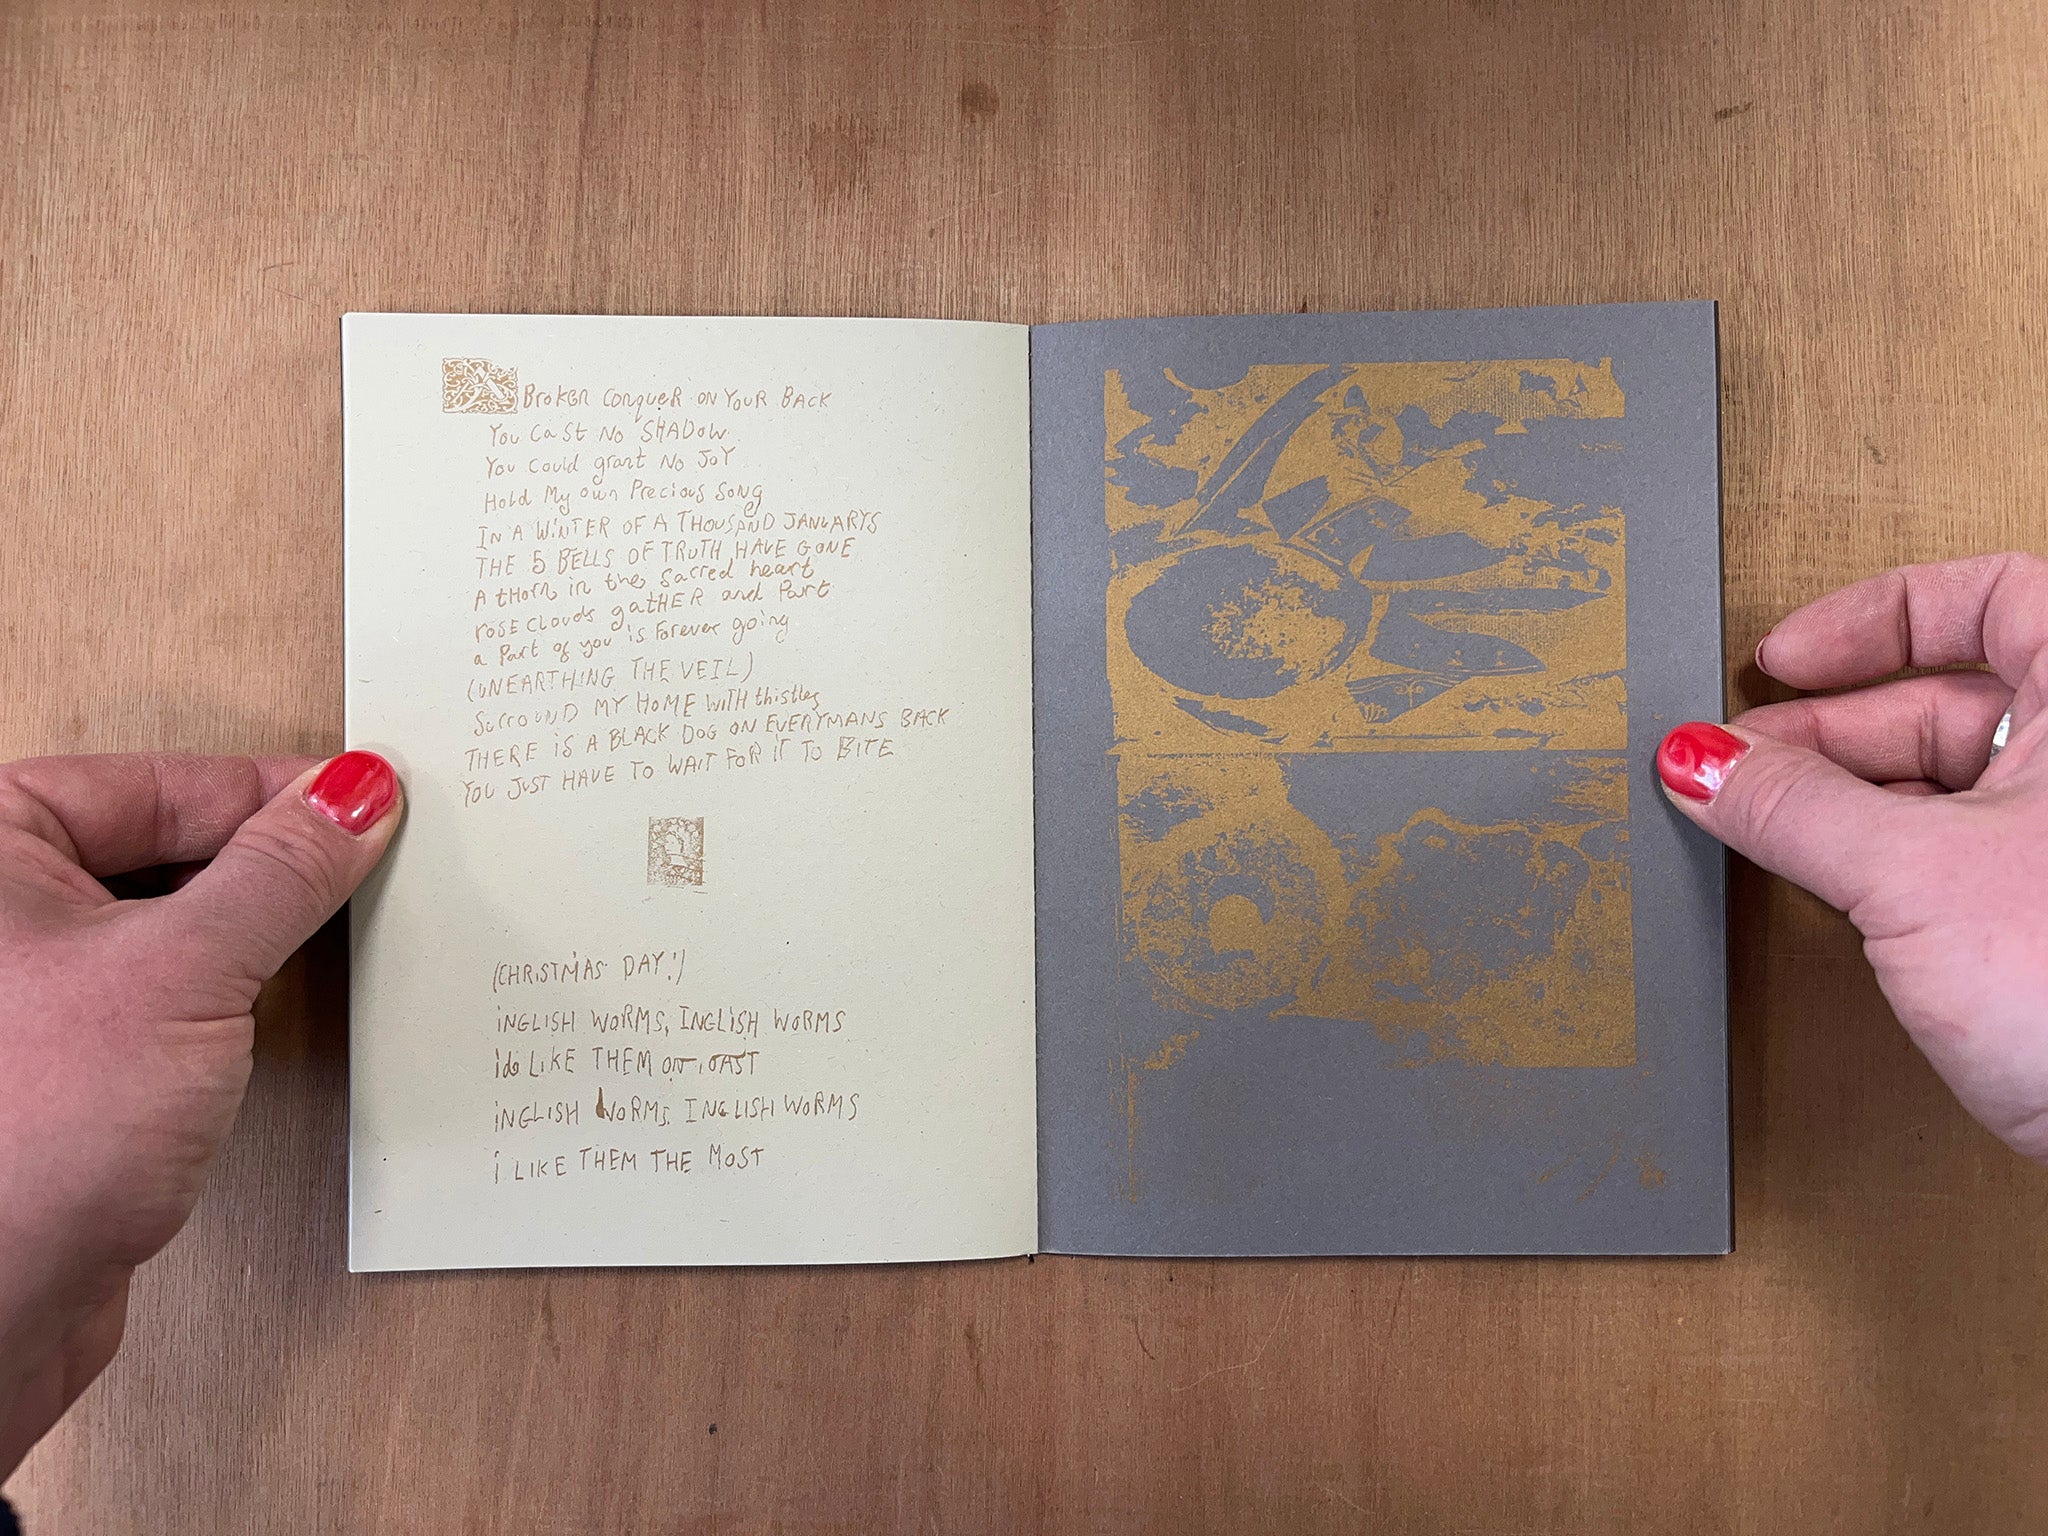 A Broken Conquer on Your Back
You Cast No SHADOW
You Could grant No JoY
Hold My own Precious Song
IN A WiNTER OF A THOUSAND JANUARYS
THE 5 BELLS OF TRUTH HAVE GONE
A tHorn in the Sacred heart
rose clouds gatHER and Part
a Part of you is Forever going
(UNEARTHING THE VEIL)
Surround MY HOME WITH thistles
THERE iS A BLACK DOG ON EVERYMANS BACK
YOU JUST HAVE TO WAIT FOR IT TO BITE
(CHRISTMAS DAY!)
iNGLISH WORMS, INGLISH WORMS
id LIKE THEM ON TOAST
iNGLISH WORMS, INGLISH WORMS
i LIKE THEM THE MOST